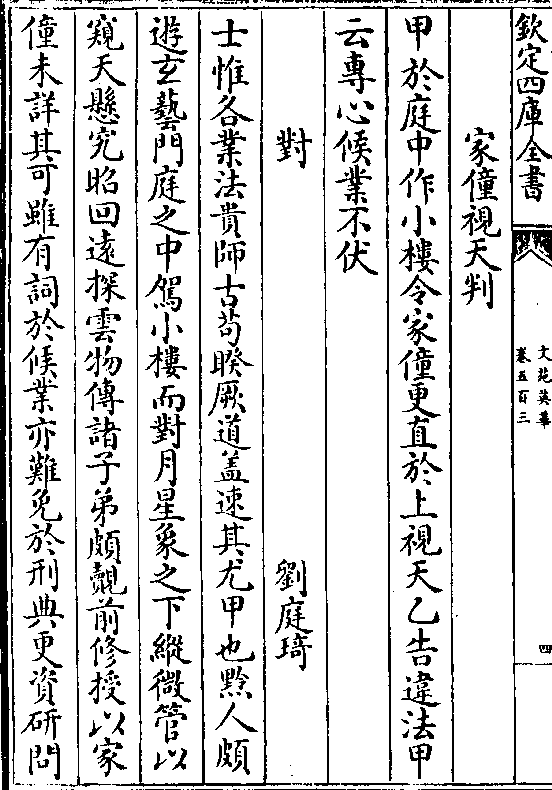 欽定四庫全書
文苑英華
卷五百三
四
家僮視天判
甲於庭中作小樓令家僮更直於上視天乙告違法甲
云專心候業不伏
對
劉庭琦
士惟各業法貴師古苟睽厥道蓋速其尤甲也黔人頗
遊玄藝門庭之中駕小樓而對月星象之下縱微管以
窺天懸究昭回遠探雲物傳諸子弟頗覿前修授以家
僮未詳其可雖有詞於候業亦難免於刑典更資研問